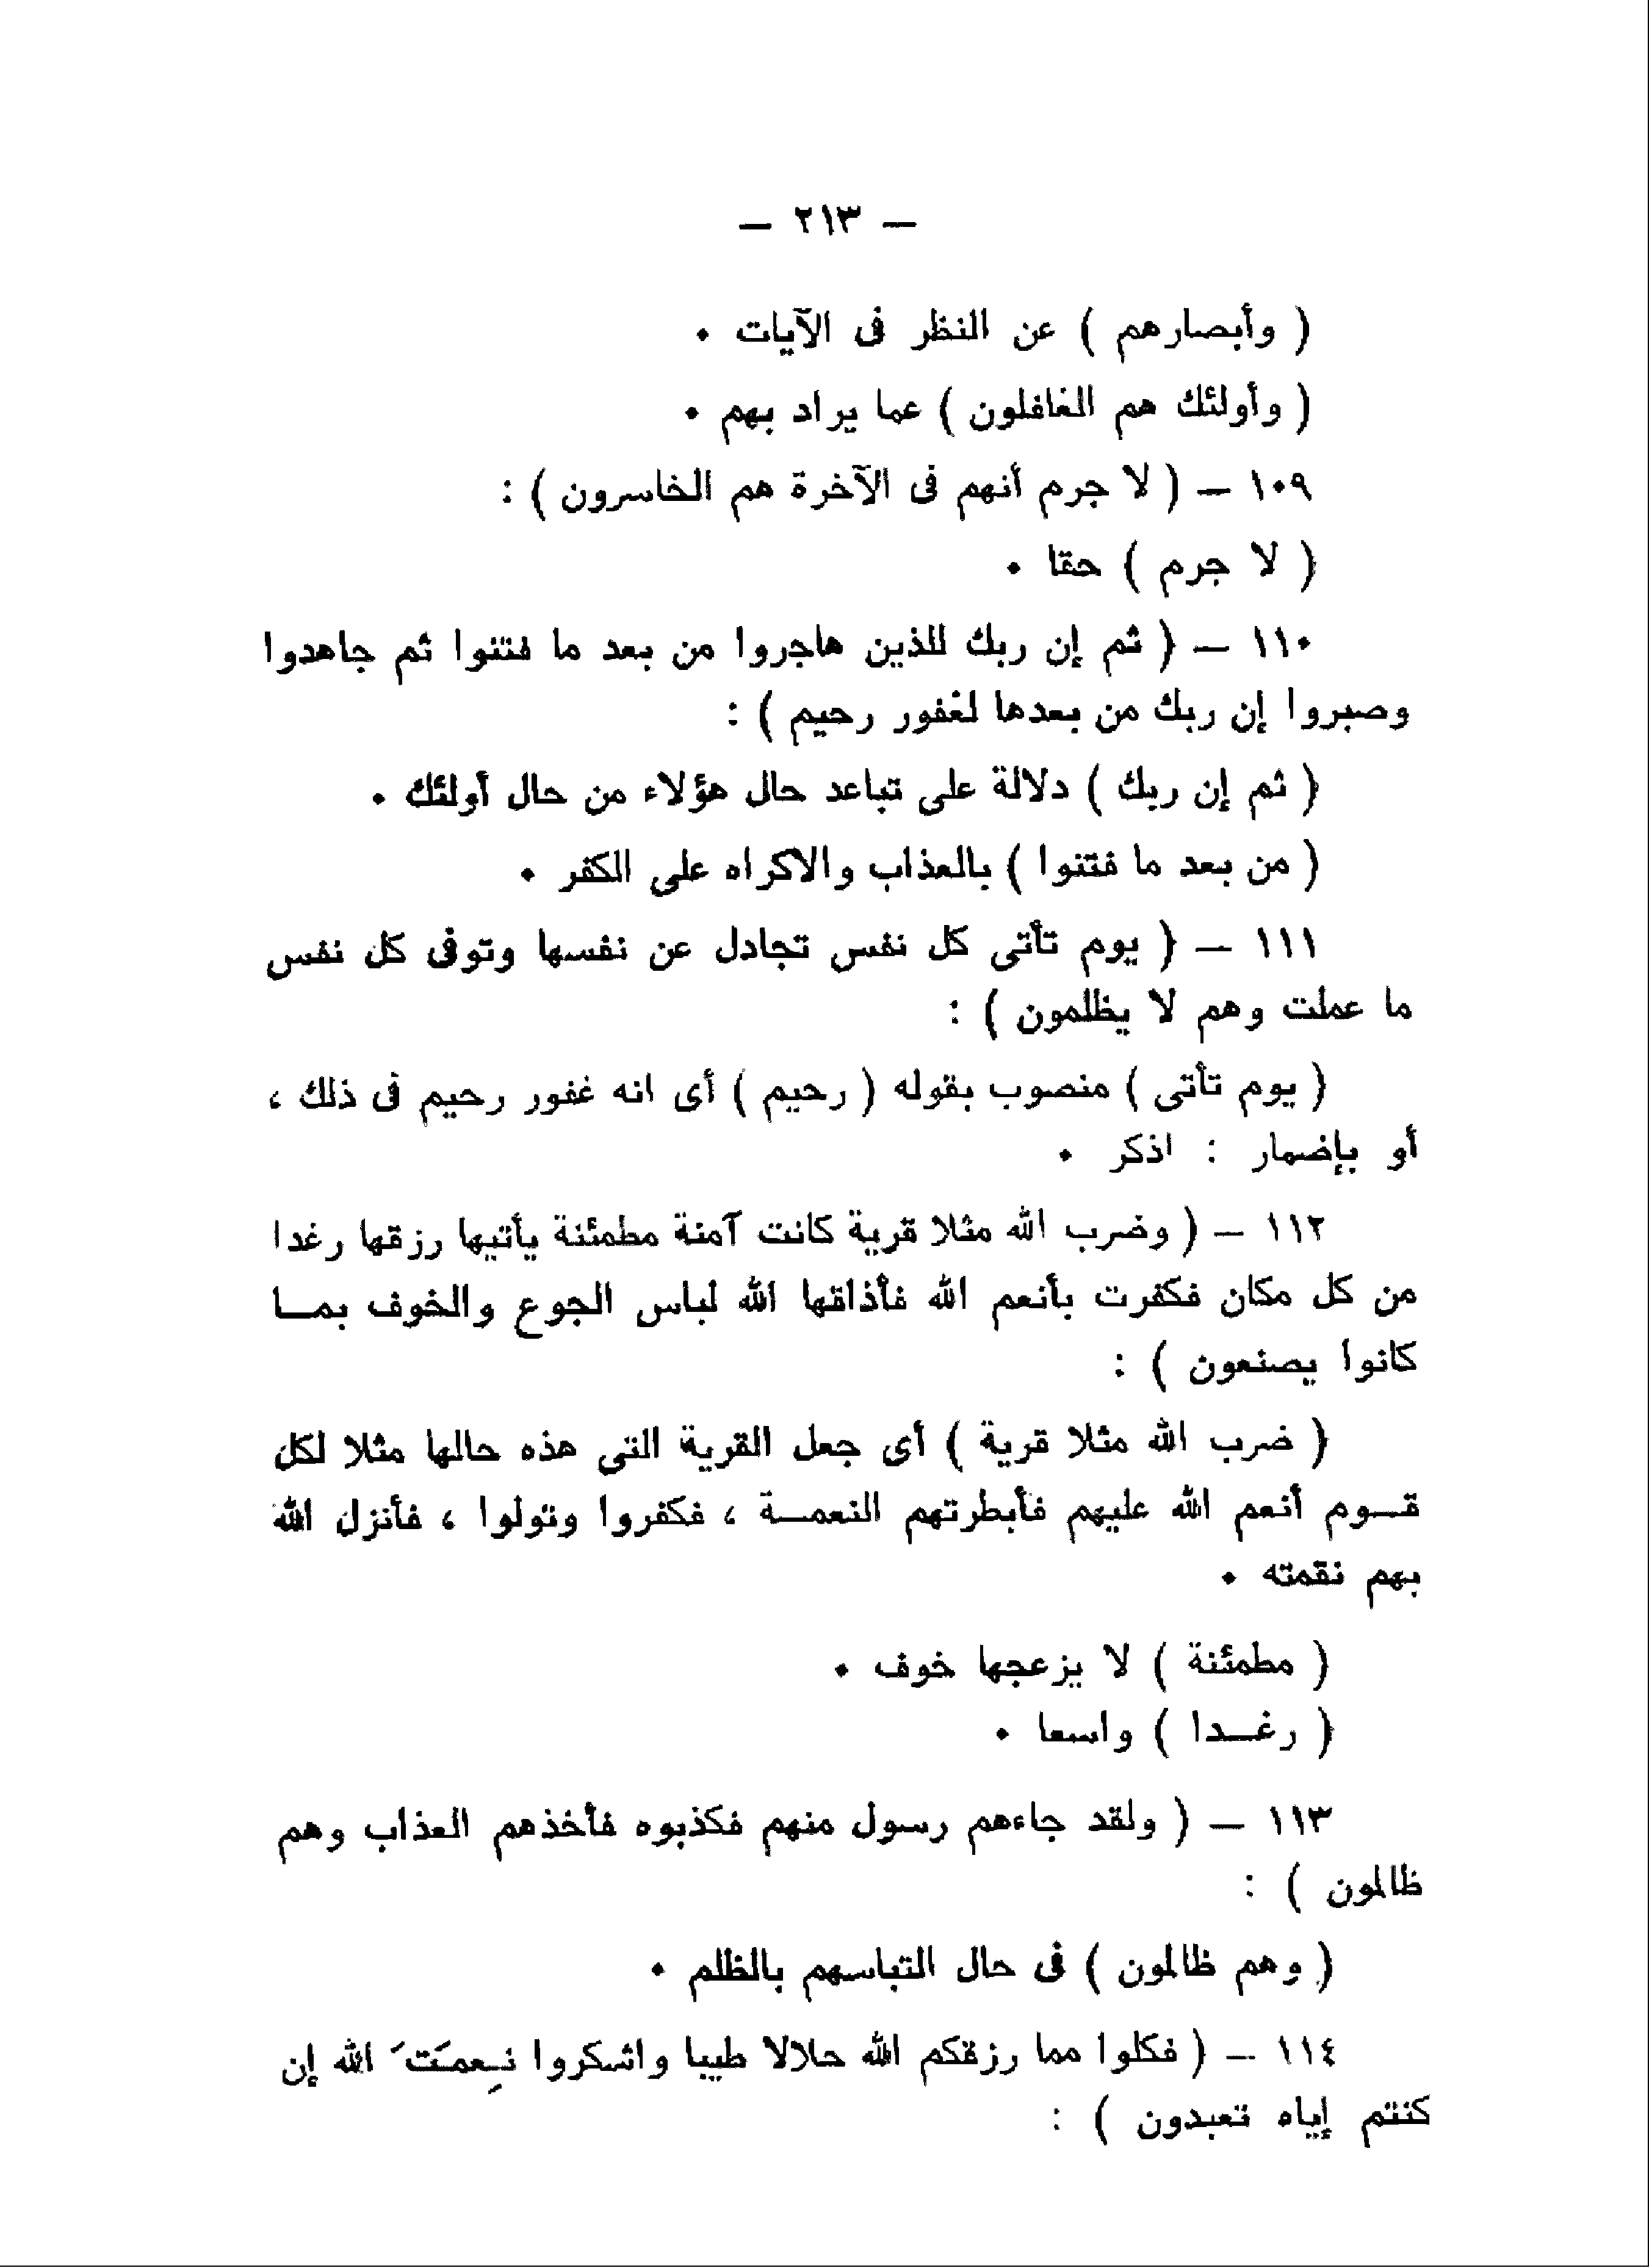 — ٢١٣ —
( وأبصارهم ) عن النظر فى الآيات ٠
( وأولئك هم الغافلون ) عما يراد بهم ٠
١٠٩ — ( لا جرم أنهم فى الآخرة هم الخاسرون ) :
( لا جرم ) حقا ٠
١١٠ — ( ثم إن ربك للذين هاجروا من بعد ما فتنوا ثم جاهدوا
وصبروا إن ربك من بعدها لغفور رحيم ) :
( ثم إن ربك ) دلالة على تباعد حال هؤلاء من حال أولئك ٠
( من بعد ما فتنوا ) بالعذاب والاكراه على الكفر ٠
١١١ — ( يوم تأتى كل نفس تجادل عن نفسها وتوفى كل نفس
ما عملت وهم لا يظلمون ) :
( يوم تأتى ) منصوب بقوله ( رحيم ) أى انه غفور رحيم فى ذلك ،
أو بإضمار : اذكر ٠
١١٢ — ( وضرب الله مثلا قرية كانت آمنة مطمئنة يأتيها رزقها رغدا
من كل مكان فكفرت بأنعم الله فأذاقها الله لباس الجوع والخوف بمـــا
كانوا يصنعون ) :
( ضرب الله مثلا قرية ) أى جعل القرية التى هذه حالها مثلا لكل
قـــوم أنعم الله عليهم فأبطرتهم النعمـــة ، فكفروا وتولوا ، فأنزل الله
بهم نقمته ٠
( مطمئنة ) لا يزعجها خوف ٠
( رغـــدا ) واسعا ٠
١١٣ — ( ولقد جاءهم رسول منهم فكذبوه فأخذهم العذاب وهم
ظالمون ) :
( وهم ظالمون ) فى حال التباسهم بالظلم ٠
١١٤ — ( فكلوا مما رزقكم الله حلالا طيبا واشكروا نِعمَتَ الله إن
كنتم إياه تعبدون ) :